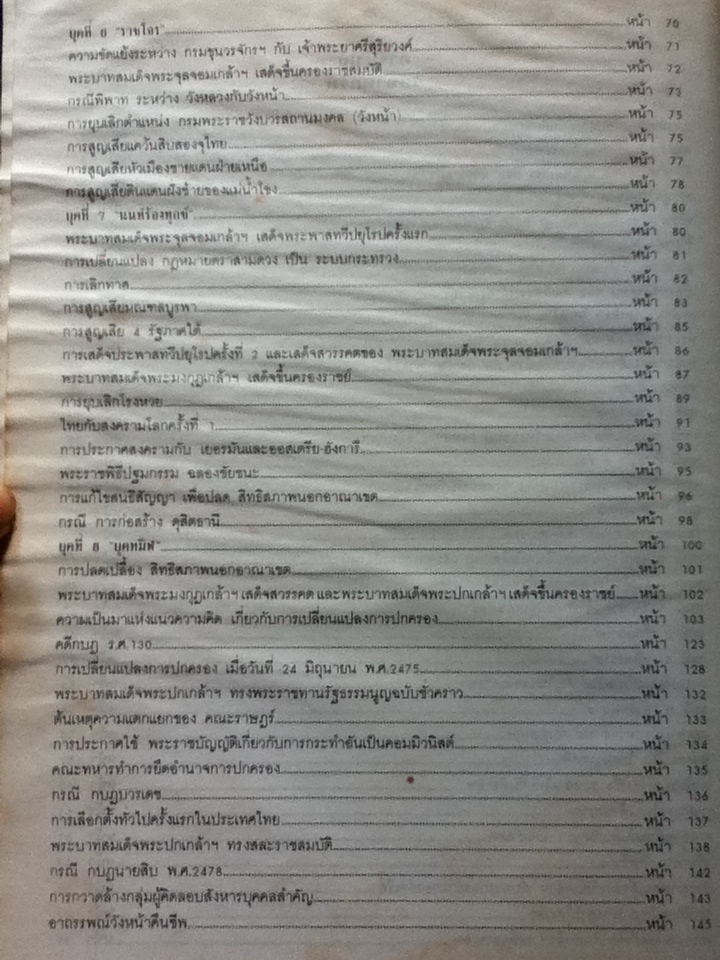 ยุคที่ 6 "ราชโจร" หน้า 70
ความขัดแย้งระหว่าง กรมขุนวรจักรฯ กับ เจ้าพระยาศรีสุริยวงศ์ หน้า 71
พระบาทสมเด็จพระจุลจอมเกล้าฯ เสด็จขึ้นครองราชสมบัติ หน้า 72
กรณีพิพาท ระหว่าง วังหลวงกับวังหน้า หน้า 73
การยุบเลิกตำแหน่ง กรมพระราชวังบวรสถานมงคล (วังหน้า) หน้า 75
การสูญเสียแคว้นสิบสองจุไทย หน้า 75
การสูญเสียหัวเมืองชายแดนฝ่ายเหนือ หน้า 77
การสูญเสียดินแดนฝั่งซ้ายของแม่น้ำโขง หน้า 78
ยุคที่ 7 "นนท์ร้องทุกข์" หน้า 80
พระบาทสมเด็จพระจุลจอมเกล้าฯ เสด็จพระพาสทวีปยุโรปครั้งแรก หน้า 80
การเปลี่ยนแปลง กฎหมายตราสามดวง เป็น ระบบกระทรวง หน้า 81
การเลิกทาส หน้า 82
การสูญเสียมณฑลบูรพา หน้า 83
การสูญเสีย 4 รัฐภาคใต้ หน้า 85
การเสด็จประพาสทวีปยุโรปครั้งที่ 2 และเสด็จสวรรคตของ พระบาทสมเด็จพระจุลจอมเกล้าฯ หน้า 86
พระบาทสมเด็จพระมงกุฎเกล้าฯ เสด็จขึ้นครองราชย์ หน้า 87
การยุบเลิกโรงหวย หน้า 89
ไทยกับสงครามโลกครั้งที่ 1 หน้า 91
การประกาศสงครามกับ เยอรมันและออสเตรีย-ฮังการี หน้า 93
พระราชพิธีปฐมกรรม ฉลองชัยชนะ หน้า 95
การแก้ไขสนธิสัญญา เพื่อปลด สิทธิสภาพนอกอาณาเขต หน้า 96
กรณี การก่อสร้าง ดุสิตธานี หน้า 98
ยุคที่ 8 "ยุคทมิฬ" หน้า 100
การปลดเปลื้อง สิทธิสภาพนอกอาณาเขต หน้า 101
พระบาทสมเด็จพระมงกุฎเกล้าฯ เสด็จสวรรคต และพระบาทสมเด็จพระปกเกล้าฯ เสด็จขึ้นครองราชย์ หน้า 102
ความเป็นมาแห่งแนวความคิด เกี่ยวกับการเปลี่ยนแปลงการปกครอง หน้า 103
คดีกบฎ ร.ศ.130 หน้า 123
การเปลี่ยนแปลงการปกครอง เมื่อวันที่ 24 มิถุนายน พ.ศ.2475 หน้า 128
พระบาทสมเด็จพระปกเกล้าฯ ทรงพระราชทานรัฐธรรมนูญฉบับชั่วคราว หน้า 132
ต้นเหตุความแตกแยกของ คณะราษฎร์ หน้า 133
การประกาศใช้ พระราชบัญญัติเกี่ยวกับการกระทำอันเป็นคอมมิวนิสต์ หน้า 134
คณะทหารทำการยึดอำนาจการปกครอง หน้า 135
กรณี กบฎบวรเดช หน้า 136
การเลือกตั้งทั่วไปครั้งแรกในประเทศไทย หน้า 137
พระบาทสมเด็จพระปกเกล้าฯ ทรงสละราชสมบัติ หน้า 138
กรณี กบฎนายสิบ พ.ศ.2478 หน้า 142
การกวาดล้างกลุ่มผู้คิดลอบสังหารบุคคลสำคัญ หน้า 143
อาถรรพณ์วังหน้าคืนชีพ หน้า 145